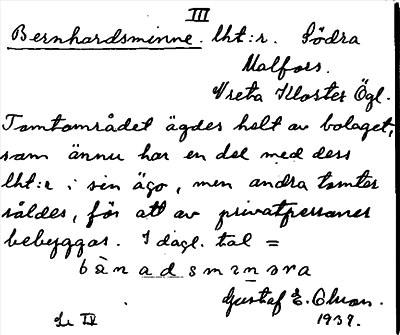 III
Bernhardsminne. lht:r. Södra
Malfors.
Vreta Kloster Ögl.
Tomtområdet ägdes helt av bolaget,
som ännu har en del med dess
lht:r i sin ägo, men andra tomter
såldes, för att av privatpersoner
bebyggas. I dagl. tal =
Gustaf E.
Se IV 1937.